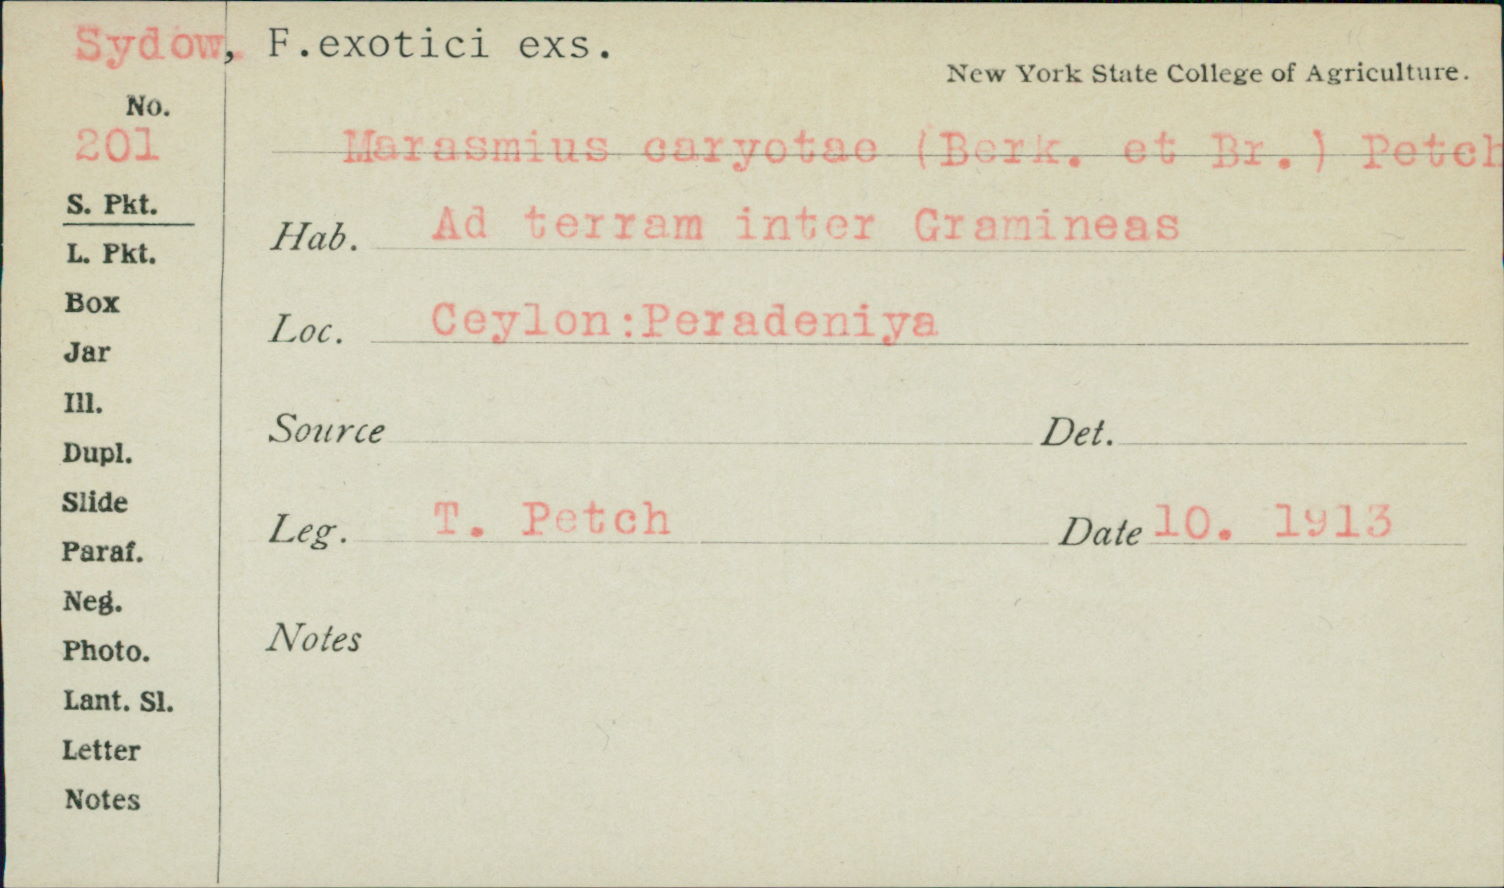 Sydow, F.exotici exs.
New York State College of Agriculture.
No.
201
Marasmius caryotae (Berk. et Br.) Petch
S. Pkt.
Hab. Ad terram inter Gramineas
L. Pkt.
Box
Loc. Ceylon:Peradeniya
Jar
Ill.
Source Det.
Dupl.
Slide
Leg. T. Petch Date 10. 1913
Paraf.
Neg.
Notes
Photo.
Lant. Sl.
Letter
Notes